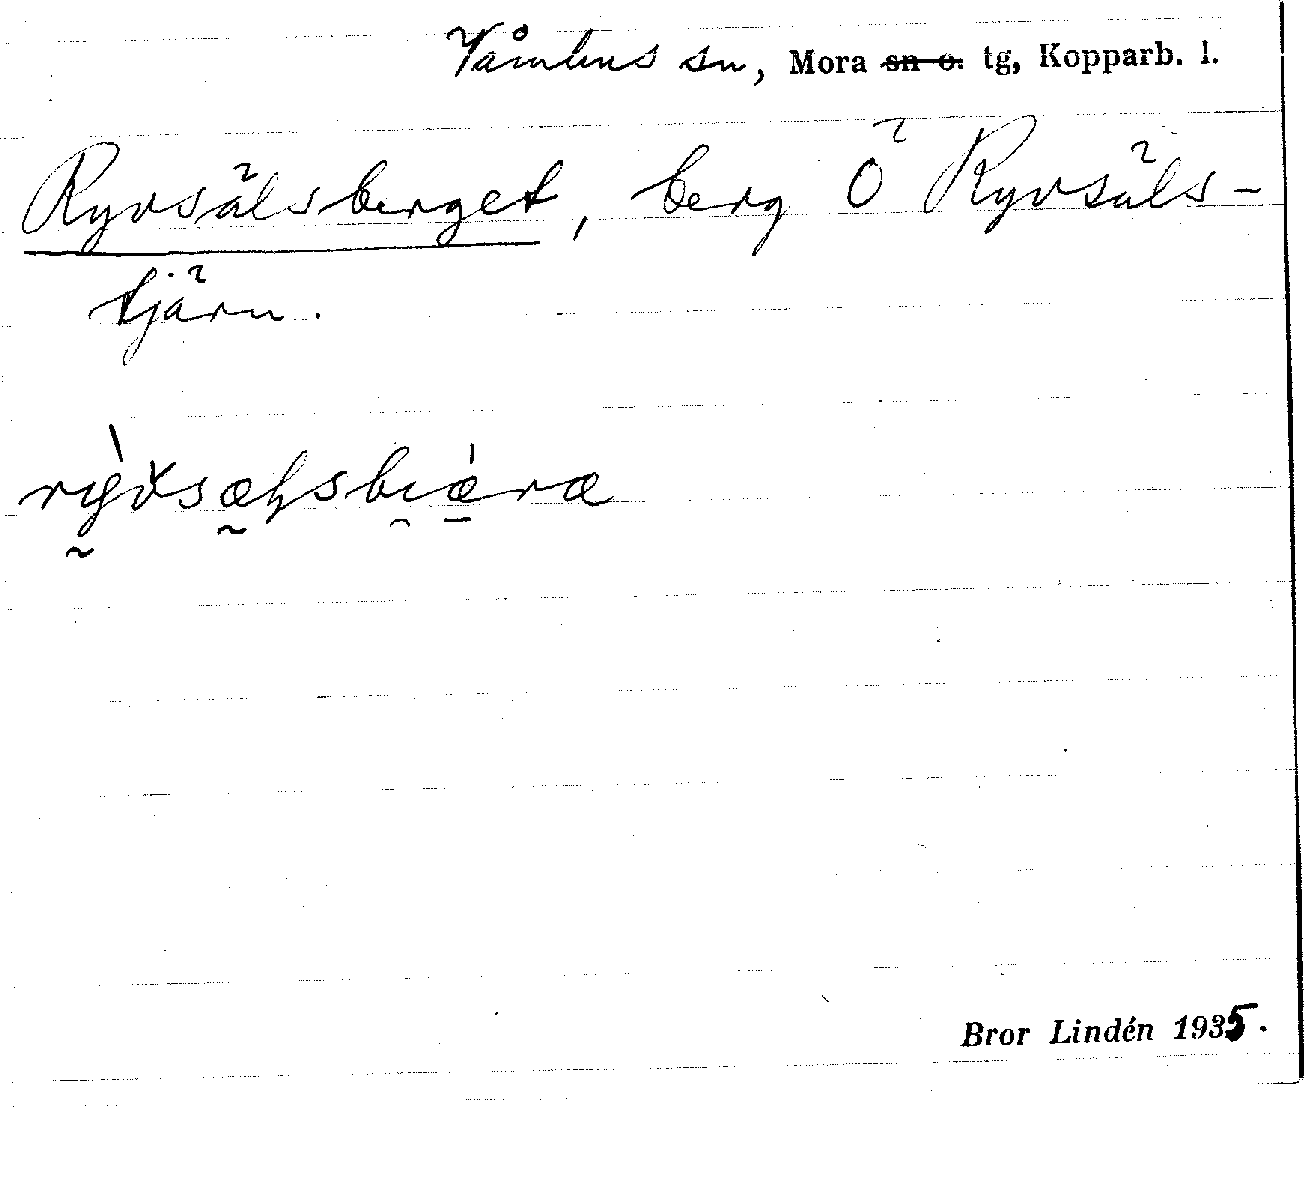 Våmhus sn, Mora sn o. tg, Kopparb. l.
Ryvsälsberget, berg Ö Ryvsäls-
tjärn.
Bror Lindén 1935.